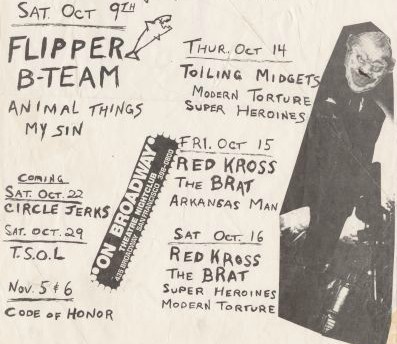 SAT. OCT 9TH
FLIPPER
B-TEAM
ANIMAL THINGS
MY SIN
COMING
SAT. OCT. 22
CIRCLE JERKS
SAT. OCT. 29
T.S.O.L
NOV. 5 & 6
CODE OF HONOR
"ON BROADWAY"
THEATRE NIGHTCLUB
435 BROADWAY SAN FRANCISCO 398-0800
THUR. OCT 14
TOILING MIDGETS
MODERN TORTURE
SUPER HEROINES
FRI. OCT 15
RED KROSS
THE BRAT
ARKANSAS MAN
SAT OCT. 16
RED KROSS
THE BRAT
SUPER HEROINES
MODERN TORTURE